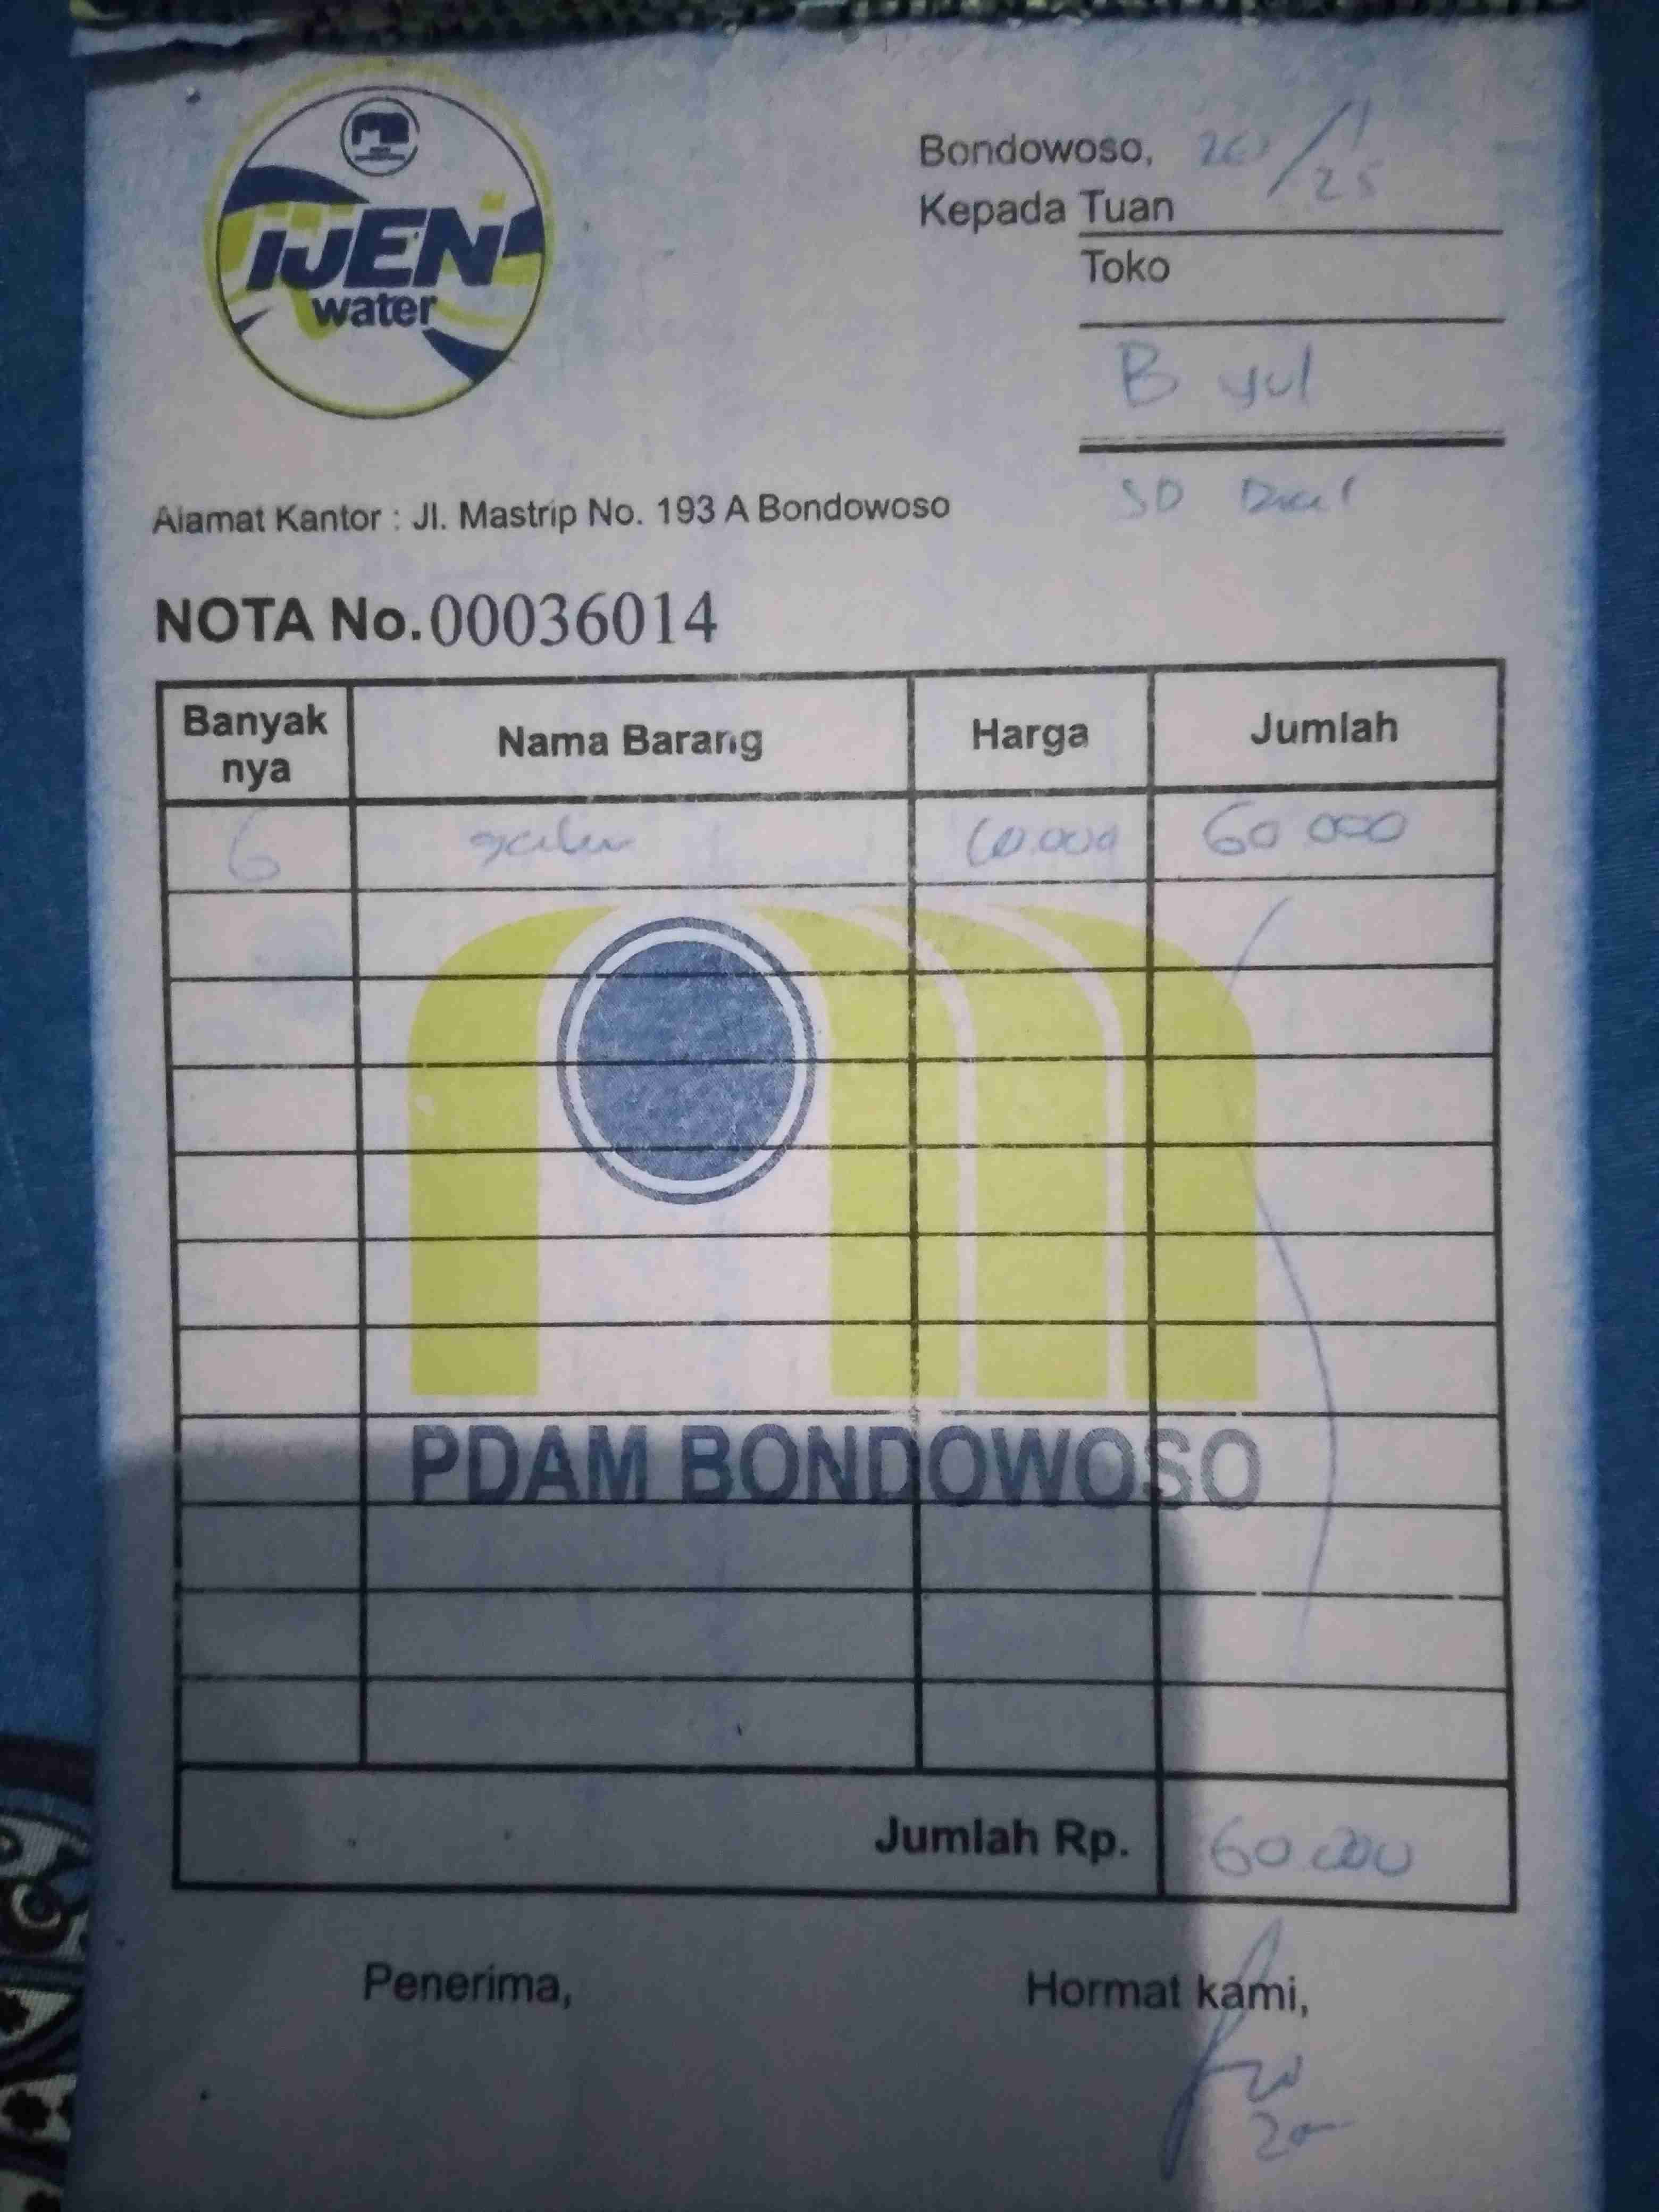 IJEN
water
Bondowoso, 20/1
25
Kepada Tuan
Toko
B yul
SD
Alamat Kantor : Jl. Mastrip No. 193 A Bondowoso
NOTA No. 00036014
Banyak nya Nama Barang Harga Jumlah
6 galon 10.000 60 000
PDAM BONDOWOSO
Jumlah Rp. 60.000
Penerima, Hormat kami,